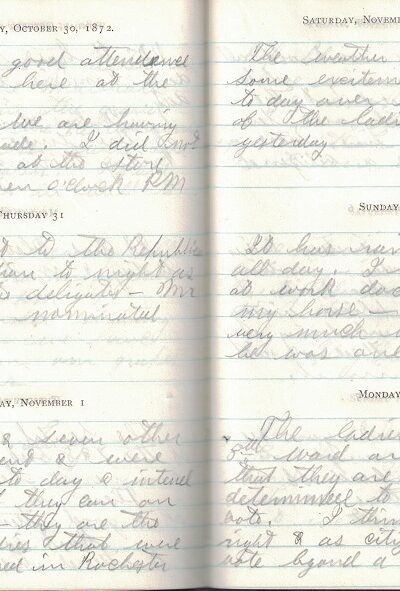 Y, OCTOBER 30, 1872.
good attendence
here at the
We are having
ade. I did not
at the store
O'Clock P.M
THURSDAY 31
t to the Republic
tion to night as
deligate — Mr
nominated
AY, NOVEMBER 1
& seven other
end & were
to day & intend
they can on
— they are the
dies that were
ed in Rochester
SATURDAY, NOVEM
The weather
some excitem
to day over
of the Ladi
yesterday
SUNDAY
It has rain
all day. I
at work doc
my horse —
very much
he was
MONDAY
The Ladies
ward an
that they are
determined to
vote. I thin
right & as city
vote byond a